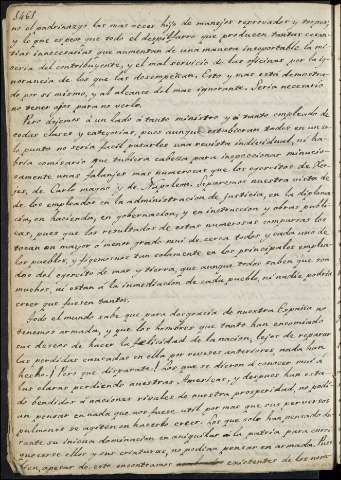 1461
no el padrinazgo las mas veces hijo de manejos reprovados y torpes,
y lo que es peor que todo el despilfarro que producen tantas cesan-
tias innecesarias que aumentan de una manera insoportable la mi-
seria del contribuyente, y el mal servicio de las oficinas por la ig-
norancia de los que las desempeñan. Esto y mas está demostra-
do por si mismo, y al alcance del mas ignorante. Sería necesario
no tener ojos para no verlo.
Pero dejemos á un lado á tanto ministro y á tanto empleado de
todas clases y categorias, pues aunque estubieran todos en un so-
lo punto no seria facil pasarles una revista individual, ni ha-
bria comisario que tubiera cabeza para inspeccionar minucio-
samente unas falanjes mas numerosas que los ejercitos de Xer-
jes, de Carlo magno y de Napoleon. Separemos nuestra vista de
de los empleados en la administracion de justicia, en la diploma-
cia, en hacienda, en gobernacion, y en instruccion y obras publi-
cas, pues que los resultados de estas numerosas comparsas los
tocan en mayor ó menor grado mui de cerca todos y cada uno de
los pueblos, y fijemonos tan solamente en los principales emplea-
dos del ejercito de mar y tierra, que aunque todos saben que son
muchos, ni estan á la inmediacion de cada pueblo, ni nadie podría
creer que fuesen tantos.
Todo el mundo sabe que para desgracia de nuestra España no
tenemos armada, y que los hombres que tanto han encomiado
sus deseos de hacer la felicidad de la nacion, lejos de reparar
las perdidas causadas en ella por reveses anteriores nada han
hecho. ¡Pero que disparate! Los que se dieron á conocer mui á
las claras perdiendo nuestras Americas, y despues han esta-
do bendidos á naciones rivales de nuestra prosperidad, no podi-
an pensar en nada que nos fuese util por mas que sus perversos
pulmones se agiten en hacerlo creer. Los que solo han pensado du-
rante su inicua dominacion en aniquilar á la patria para enri-
quecerse ellos y sus criaturas, no podian pensar en armada. Pues
bien, apesar de esto encontramos existentes de los nom-